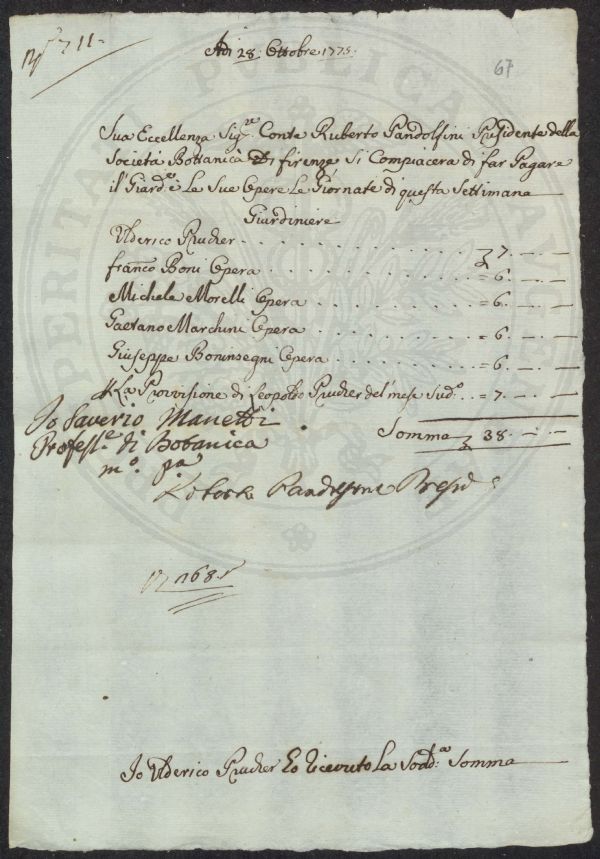 711
Adi 28: Ottobre 1775:
67
Sua Eccellenza Sig:re Conte Ruberto Pandolfini Presidente della
Società Bottanica Di firenze Si Compiacera di far Pagare
il Giard:e e Le Sue Opere Le Giornate di questa Settimana
Giardiniere
Ulderico Prucher . . . . 7. — —
Franco Boni Opera . . . . = 6. — —
Michele Morelli Opera . . . . = 6. — —
Gaetano Marchini Opera . . . . = 6. — —
Giuseppe Boninsegni Opera . . . . = 6. — —
La Provisione di Leopoldo Prucher del mese Sud:o . . = 7. — —
Somma 38. — —
Io Saverio Manetti
Profess:e di Botanica
m:o p:a
Roberto Pandolfini Presid
1168
Io Ulderico Prucher Ho ricevuto La Sodd:a Somma
PERITAM PUBLICA